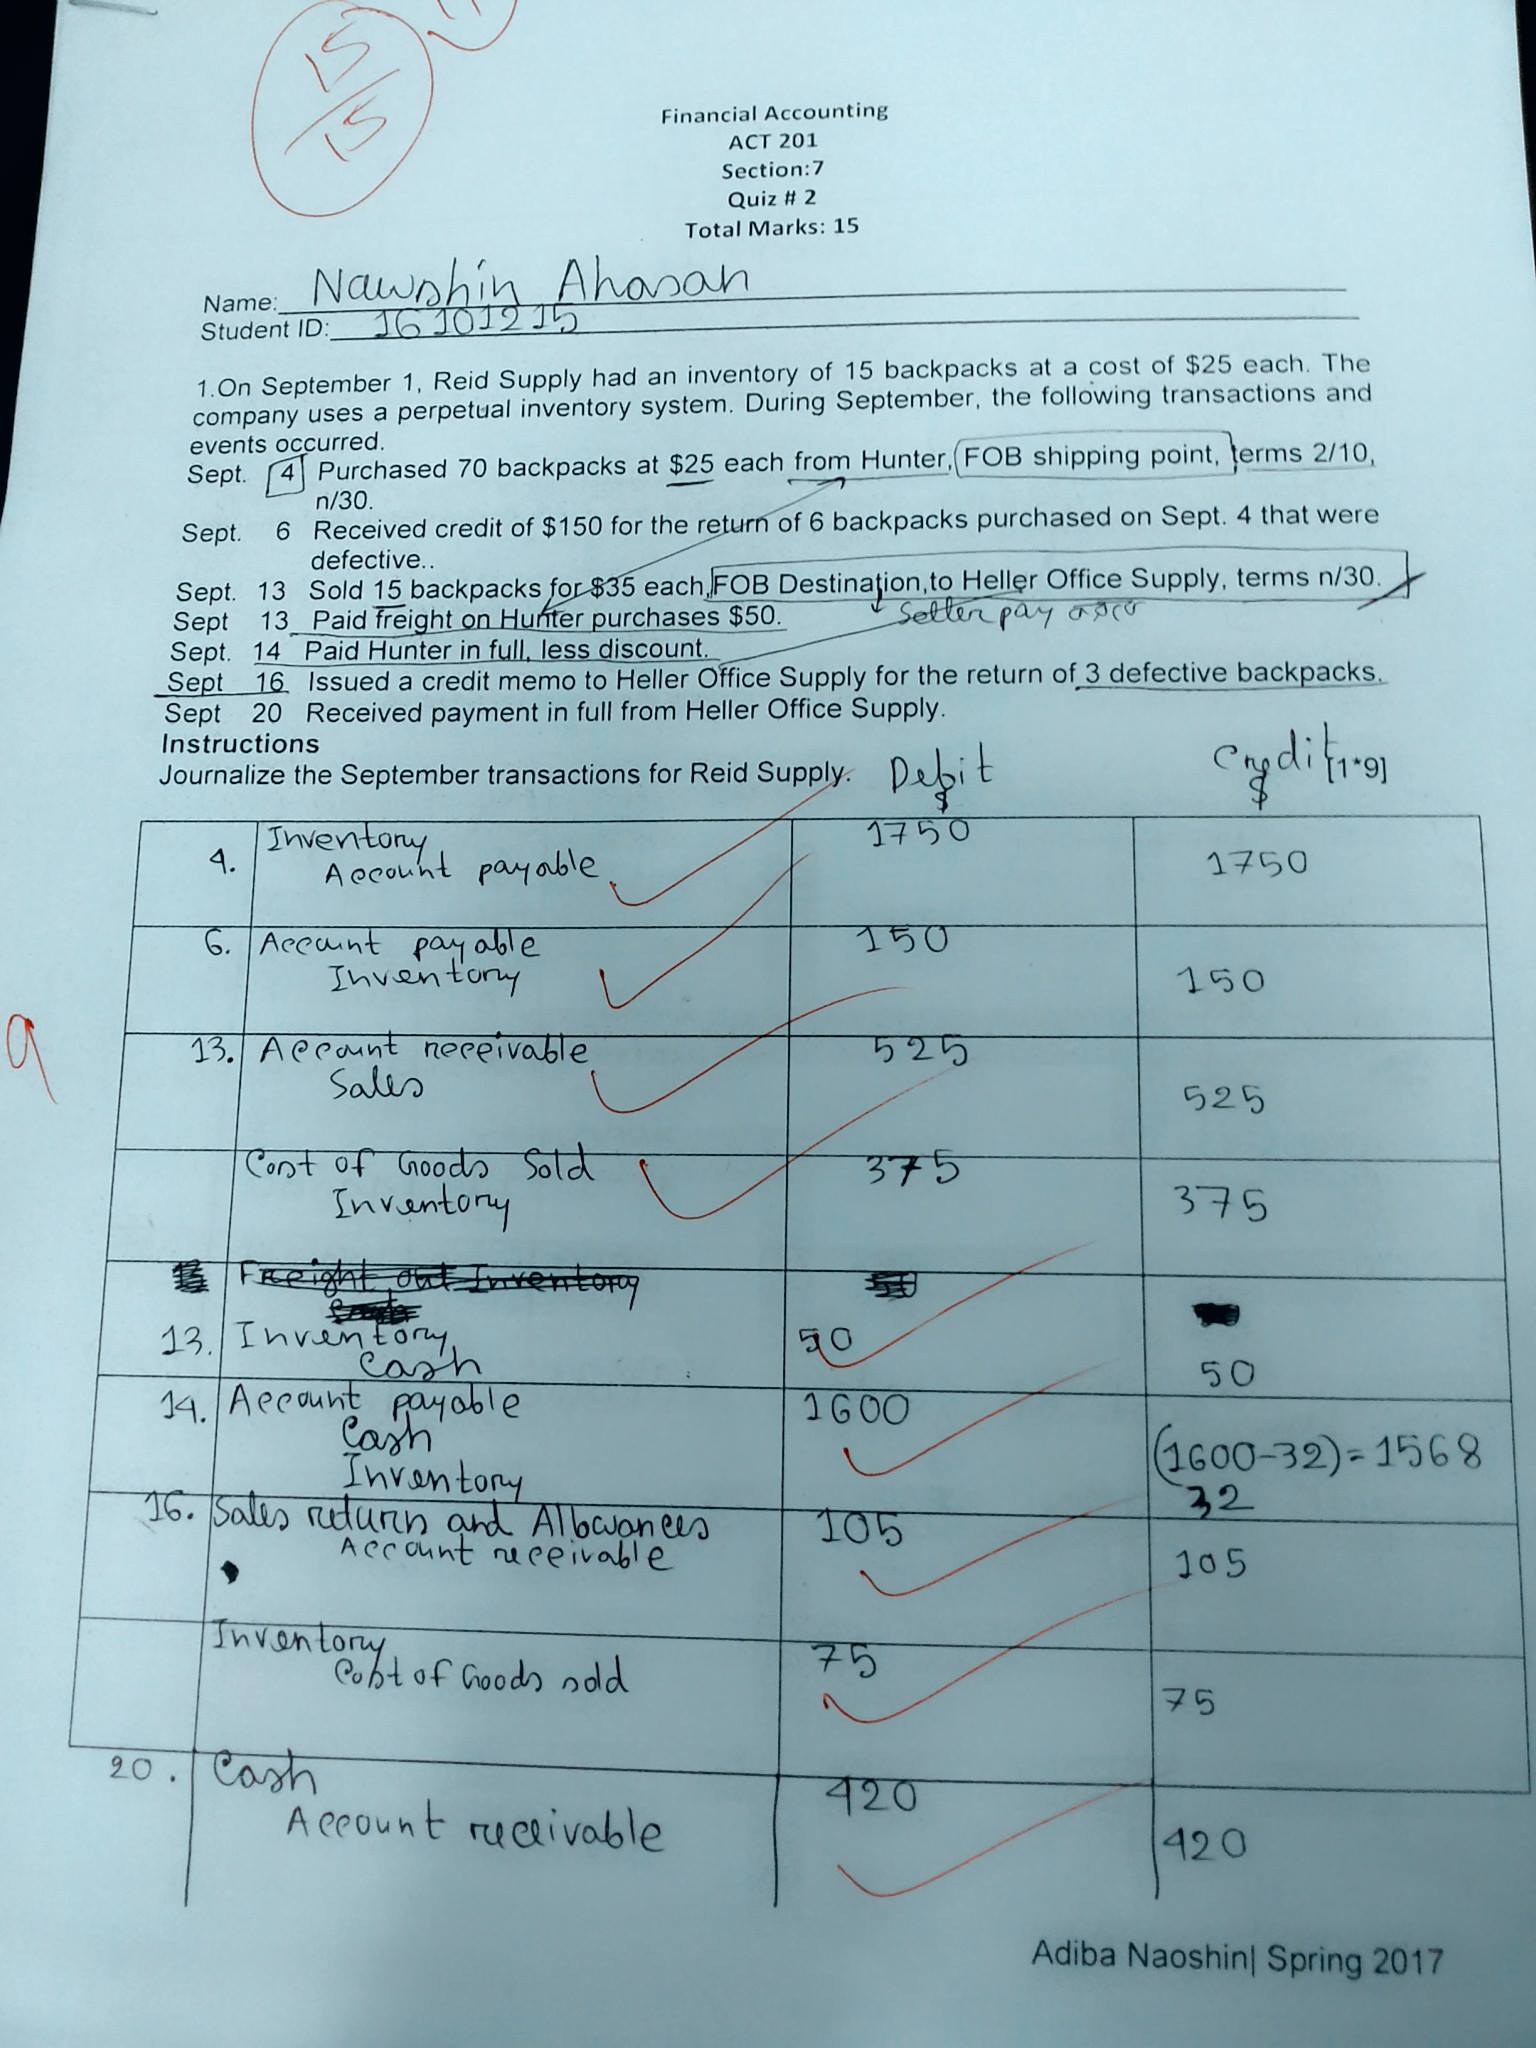 15
15
Financial Accounting
ACT 201
Section:7
Quiz # 2
Total Marks: 15
Name: Nawshin Ahasan
Student ID: 16101215
1.On September 1, Reid Supply had an inventory of 15 backpacks at a cost of $25 each. The
company uses a perpetual inventory system. During September, the following transactions and
events occurred.
Sept. 4 Purchased 70 backpacks at $25 each from Hunter, FOB shipping point, terms 2/10,
n/30.
Sept. 6 Received credit of $150 for the return of 6 backpacks purchased on Sept. 4 that were
defective..
Sept. 13 Sold 15 backpacks for $35 each, FOB Destination, to Heller Office Supply, terms n/30.
Sept 13 Paid freight on Hunter purchases $50.
Seller pay
Sept. 14 Paid Hunter in full, less discount.
Sept 16 Issued a credit memo to Heller Office Supply for the return of 3 defective backpacks.
Sept 20 Received payment in full from Heller Office Supply.
Instructions
Journalize the September transactions for Reid Supply. Debit Credit [1*9]
$ $
4. Inventory 1750
Account payable 1750
6. Account payable 150
Inventory 150
9
13. Account receivable 525
Sales 525
Cost of Goods Sold 375
Inventory 375
Freight out Inventory
13. Inventory 50
Cash 50
14. Account payable 1600
Cash (1600-32)=1568
Inventory 32
16. Sales return and Allowances 105
Account receivable 105
Inventory 75
Cost of Goods sold 75
20. Cash 420
Account receivable 420
Adiba Naoshin| Spring 2017